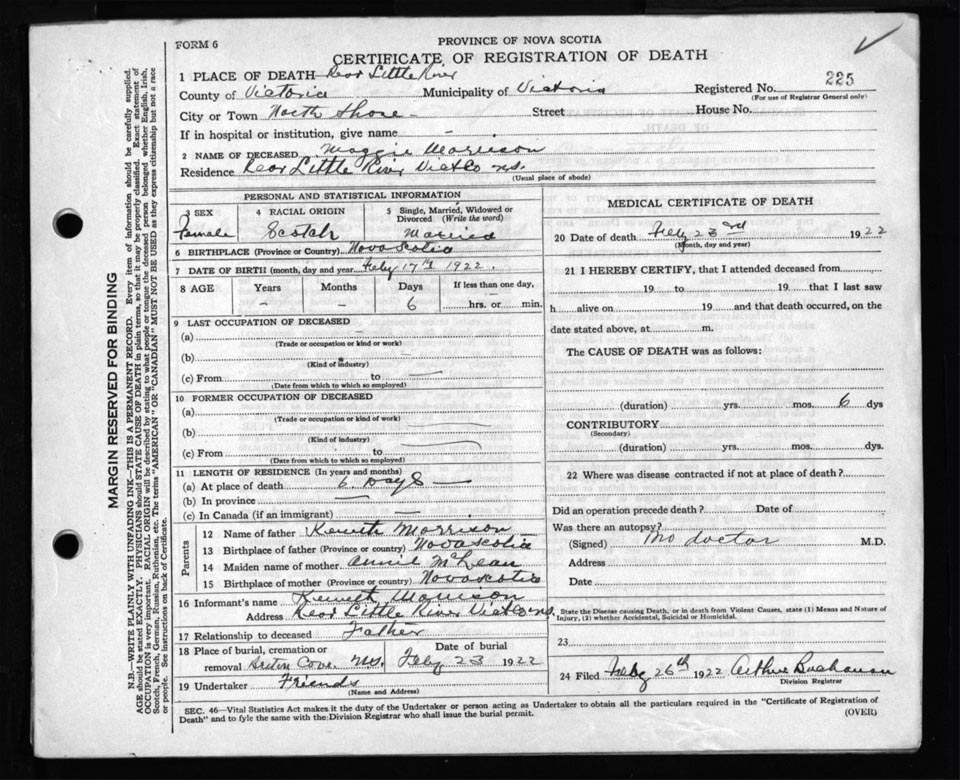 FORM 6
PROVINCE OF NOVA SCOTIA
CERTIFICATE OF REGISTRATION OF DEATH
1 PLACE OF DEATH Rear Little River
County of Victoria Municipality of Victoria Registered No. 225
(For use of Registrar General only)
City or Town North Shore Street House No.
If in hospital or institution, give name
2 NAME OF DECEASED Maggie Morrison
Residence Rear Little River Victo NS.
(Usual place of abode)
PERSONAL AND STATISTICAL INFORMATION
3 SEX
Female
4 RACIAL ORIGIN
Scotch
5 Single, Married, Widowed or Divorced (Write the word)
Married
6 BIRTHPLACE (Province or Country) Nova Scotia
7 DATE OF BIRTH (month, day and year) Feby 17th 1922
8 AGE Years Months Days If less than one day,
- - 6 hrs. or min.
9 LAST OCCUPATION OF DECEASED
(a)
(Trade or occupation or kind or work)
(b)
(Kind of industry)
(c) From to
(Date from which to which so employed)
10 FORMER OCCUPATION OF DECEASED
(a)
(Trade or occupation or kind of work)
(b)
(Kind of industry)
(c) From to
(Date from which to which so employed)
11 LENGTH OF RESIDENCE (In years and months)
(a) At place of death 6. Days
(b) In province
(c) In Canada (if an immigrant)
Parents
12 Name of father Kenneth Morrison
13 Birthplace of father (Province or country) Nova Scotia
14 Maiden name of mother Annie McLean
15 Birthplace of mother (Province or country) Nova Scotia
16 Informant's name Kenneth Morrison
Address Rear Little River Victo NS.
17 Relationship to deceased Father
18 Place of burial, cremation or Date of burial
removal Cove NS. Feby 23 1922
19 Undertaker Friends
(Name and Address)
MEDICAL CERTIFICATE OF DEATH
20 Date of death Feby 23rd 1922
(Month, day and year)
21 I HEREBY CERTIFY, that I attended deceased from
19 to 19 that I last saw
h alive on 19 and that death occurred, on the
date stated above, at m.
The CAUSE OF DEATH was as follows:
(duration) yrs. mos. 6 dys
CONTRIBUTORY
(Secondary)
(duration) yrs. mos. dys.
22 Where was disease contracted if not at place of death?
Did an operation precede death? Date of
Was there an autopsy?
(Signed) No doctor M.D.
Address
Date
State the Disease causing Death, or in death from Violent Causes, state (1) Means and Nature of
Injury, (2) whether Accidental, Suicidal or Homicidal.
23
24 Filed Feby 26th 1922 Arthur Buchanan
Division Registrar
SEC. 46—Vital Statistics Act makes it the duty of the Undertaker or person acting as Undertaker to obtain all the particulars required in the "Certificate of Registration of
Death" and to fyle the same with the Division Registrar who shall issue the burial permit.
(OVER)
MARGIN RESERVED FOR BINDING
N.B.—WRITE PLAINLY WITH UNFADING INK—THIS IS A PERMANENT RECORD. Every item of information should be carefully supplied.
AGE should be stated EXACTLY. PHYSICIANS should STATE CAUSE OF DEATH in plain terms, so that it may be properly classified. Exact statement of
OCCUPATION is very important. RACIAL ORIGIN will be described by stating to what people or tongue the deceased person belonged whether English, Irish,
Scotch, French, German, Russian, Ruthenian, etc. The terms "AMERICAN" OR "CANADIAN" MUST NOT BE USED as they express citizenship but not a race
or people. See instructions on back of Certificate.